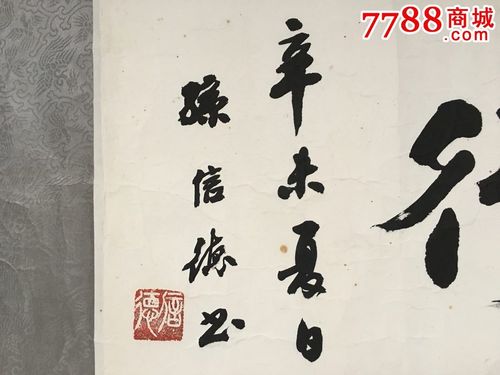 7788商城
辛未夏日
孫信德书
信德